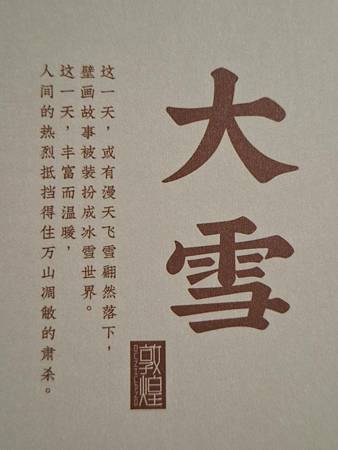 大雪
这一天，或有漫天飞雪翩然落下，
壁画故事被装扮成冰雪世界。
这一天，丰富而温暖，
人间的热烈抵挡得住万山凋敝的肃杀。
敦煌